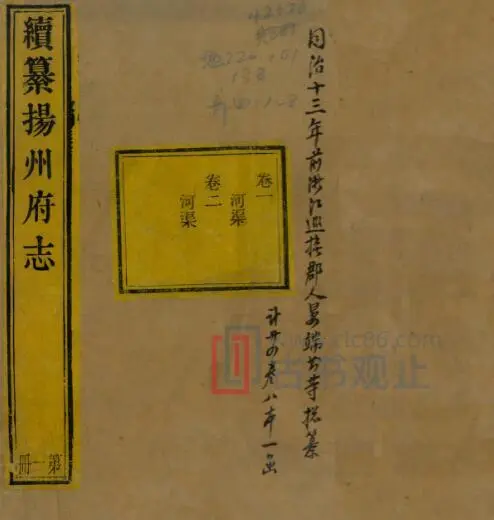 同治十三年前浙江巡撫郡人晏端書等總纂
計廿四卷八本一函
卷一
河渠
卷二
河渠
續纂揚州府志
第一冊
www.rlc86.com
古书观止